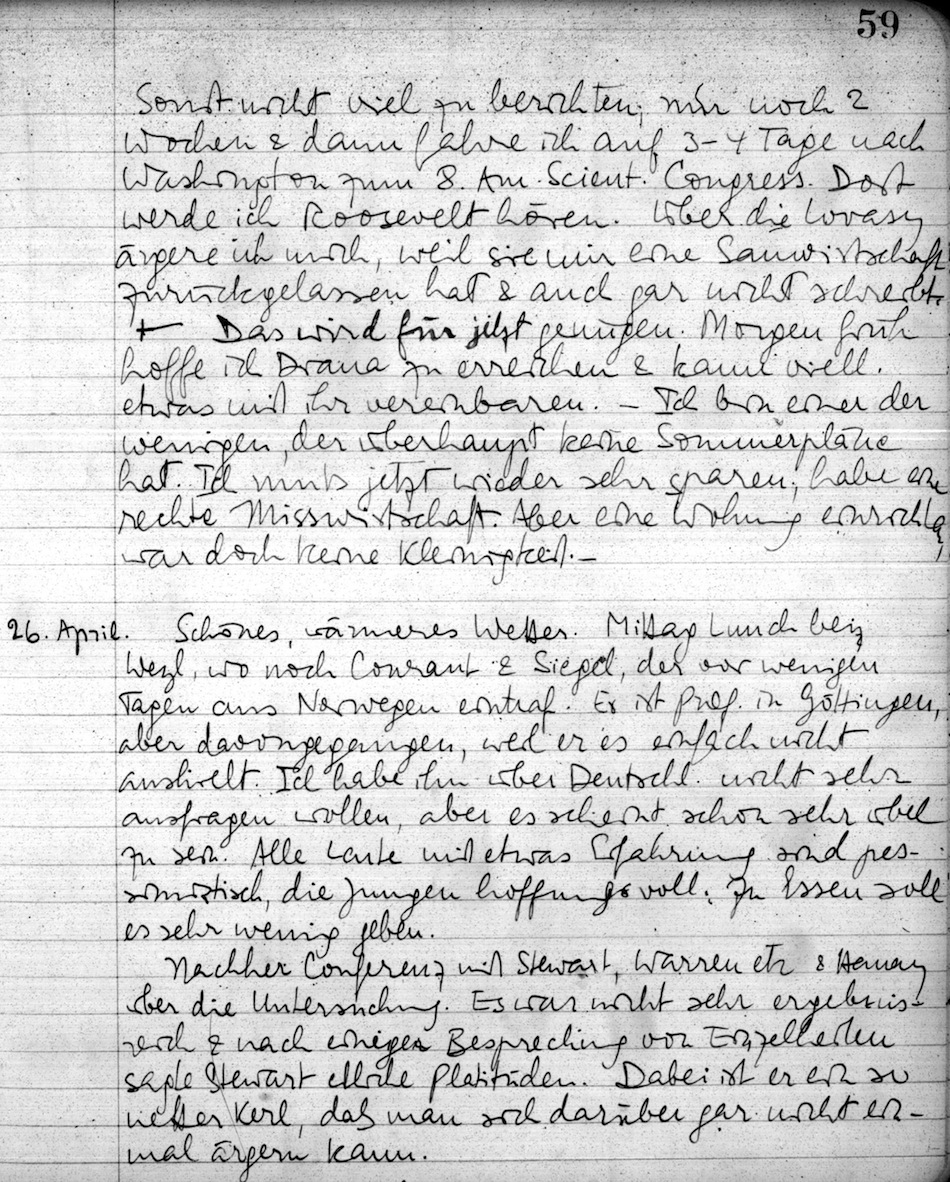 59
Sonst nicht viel zu berichten; nur noch 2
Wochen & dann fahre ich auf 3-4 Tage nach
Washington zum 8. Am. Scient. Congress. Dort
werde ich Roosevelt hören. Über die Lovasy
ärgere ich mich, weil sie mir eine Sauwirtschaft
zurückgelassen hat & auch gar nicht schreibt.
+ Das wird für jetzt genügen. Morgen früh
hoffe ich Drana zu erreichen & kann viell.
etwas mit ihr vereinbaren. – Ich bin einer der
wenigen, der überhaupt keine Sommerpläne
hat. Ich muss jetzt wieder sehr sparen; habe eine
rechte Misswirtschaft. Aber eine Wohnung einrichten
war doch keine Kleinigkeit. –
26. April. Schönes, wärmeres Wetter. Mittag Lunch bei
Weyl, wo noch Courant & Siegel, der vor wenigen
Tagen aus Norwegen eintraf. Er ist Prof. in Göttingen,
aber davongegangen, weil er es einfach nicht
aushielt. Ich habe ihn über Deutschl. nicht sehr
ausfragen wollen, aber es scheint schon sehr übel
zu sein. Alle Leute mit etwas Erfahrung sind pes-
simistisch, die Jungen hoffnungsvoll. Zu Essen soll
es sehr wenig geben.
Nachher Conferenz mit Stewart, Warren etc &
über die Untersuchung. Es war nicht sehr ergebnis-
reich & nach einiger Besprechung von Einzelheiten
sagte Stewart etliche Platitüden. Dabei ist er ein so
netter Kerl, dass man sich darüber gar nicht ein-
mal ärgern kann.